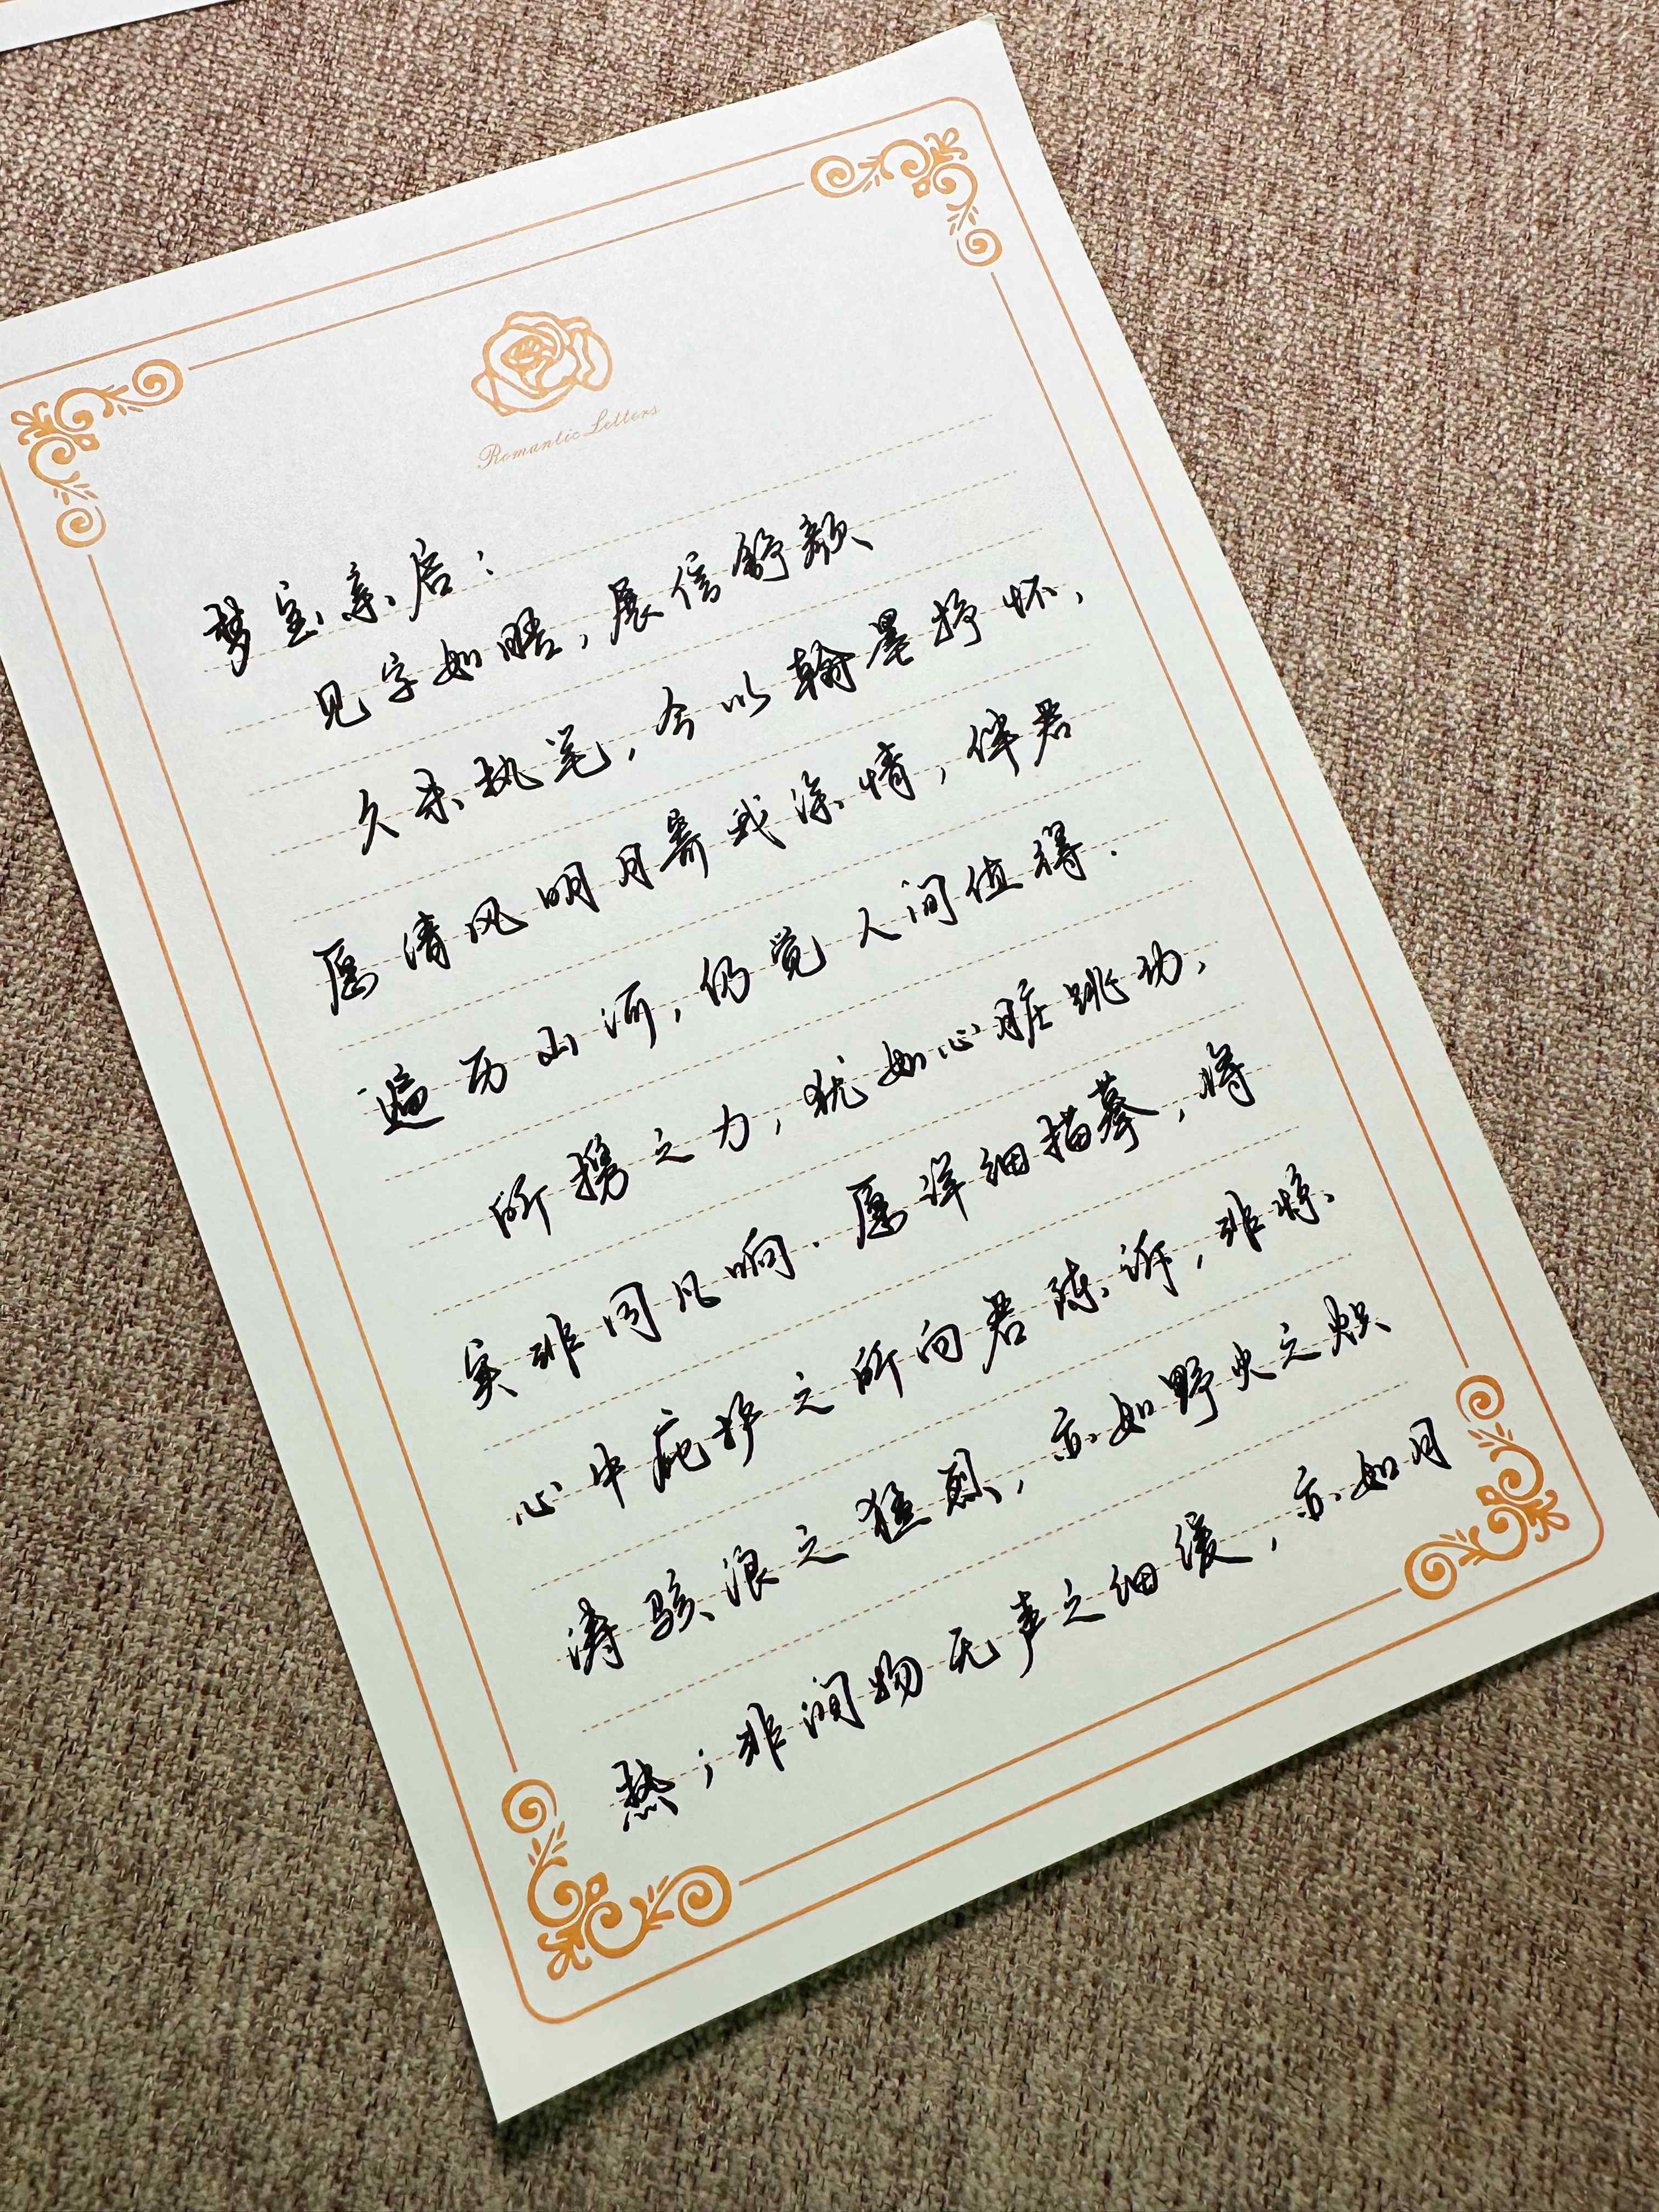 Romantic Letters
梦宝亲启：
见字如晤，展信舒颜
久未执笔，今以翰墨抒怀，
愿清风明月寄我深情，伴君
遍历山河，仍觉人间值得.
所携之力，犹如心脏跳动，
实非同凡响.愿详细描摹，将
心中庇护之所向君陈诉，非惊
涛骇浪之猛烈，亦如野火之炽
热；非润物无声之细缓，亦如月